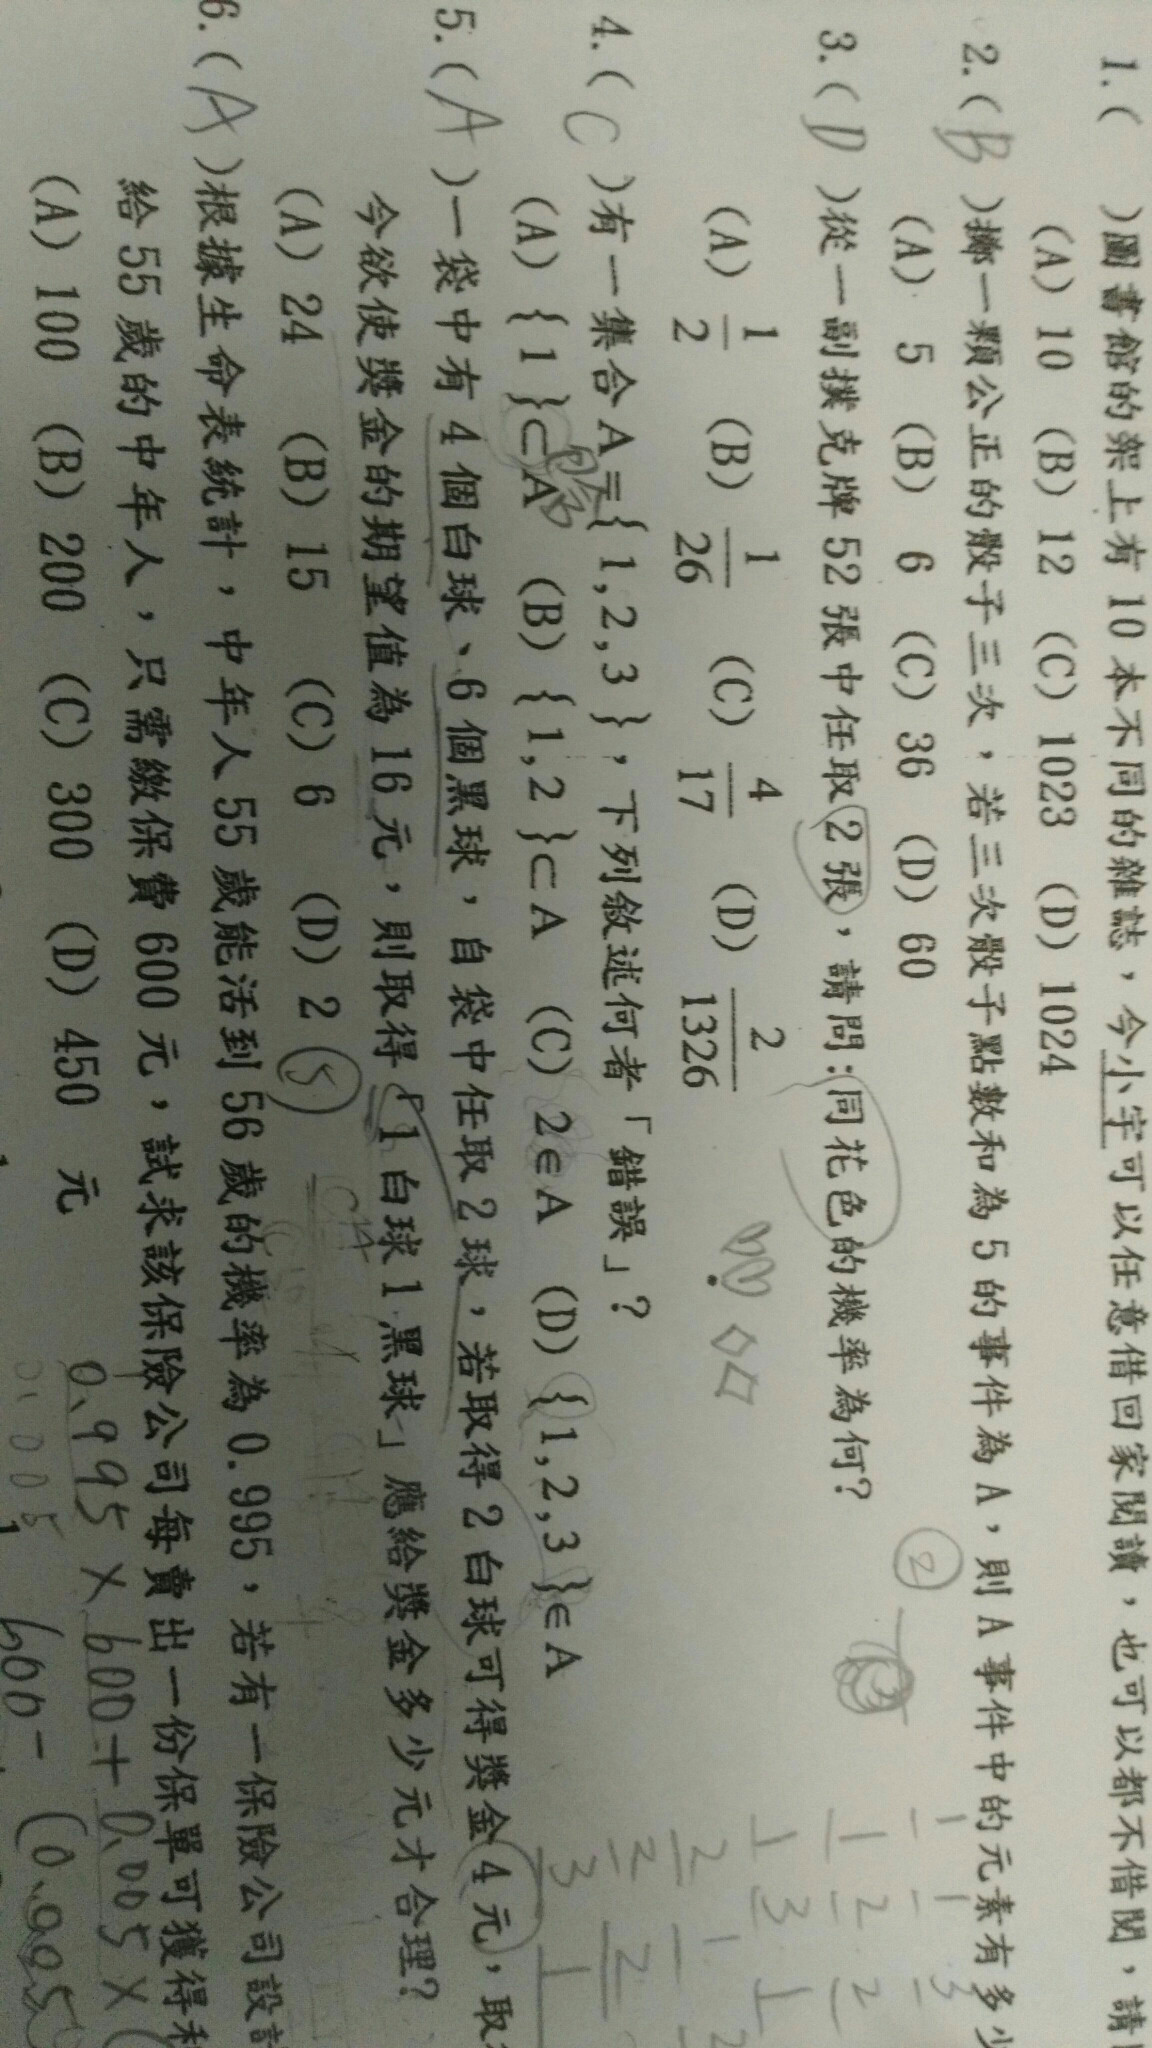 1.(　)圖書館的架上有10本不同的雜誌，今小宇可以任意借回家閱讀，也可以都不借閱，請
(A) 10 (B) 12 (C) 1023 (D) 1024
2.( B )擲一顆公正的骰子三次，若三次骰子點數和為5的事件為A，則A事件中的元素有多少
(A) 5 (B) 6 (C) 36 (D) 60
3.( D )從一副撲克牌52張中任取2張，請問：同花色的機率為何？
(A) 1/2 (B) 1/26 (C) 4/17 (D) 2/1326
4.( C )有一集合A={1,2,3}，下列敘述何者「錯誤」？
(A) {1}⊂A (B) {1,2}⊂A (C) 2∈A (D) {1,2,3}∈A
5.( A )一袋中有4個白球、6個黑球，自袋中任取2球，若取得2白球可得獎金4元，取
今欲使獎金的期望值為16元，則取得「1白球1黑球」應給獎金多少元才合理？
(A) 24 (B) 15 (C) 6 (D) 2 5
6.( A )根據生命表統計，中年人55歲能活到56歲的機率為0.995，若有一保險公司設計
給55歲的中年人，只需繳保費600元，試求該保險公司每賣出一份保單可獲得利
(A) 100 (B) 200 (C) 300 (D) 450 元
0.995 × 600 + 0.005 × (
0.005
600 - (0.995
2
1 1 3
1 2 2
1 3 1
2 1 2
2 2
3 1